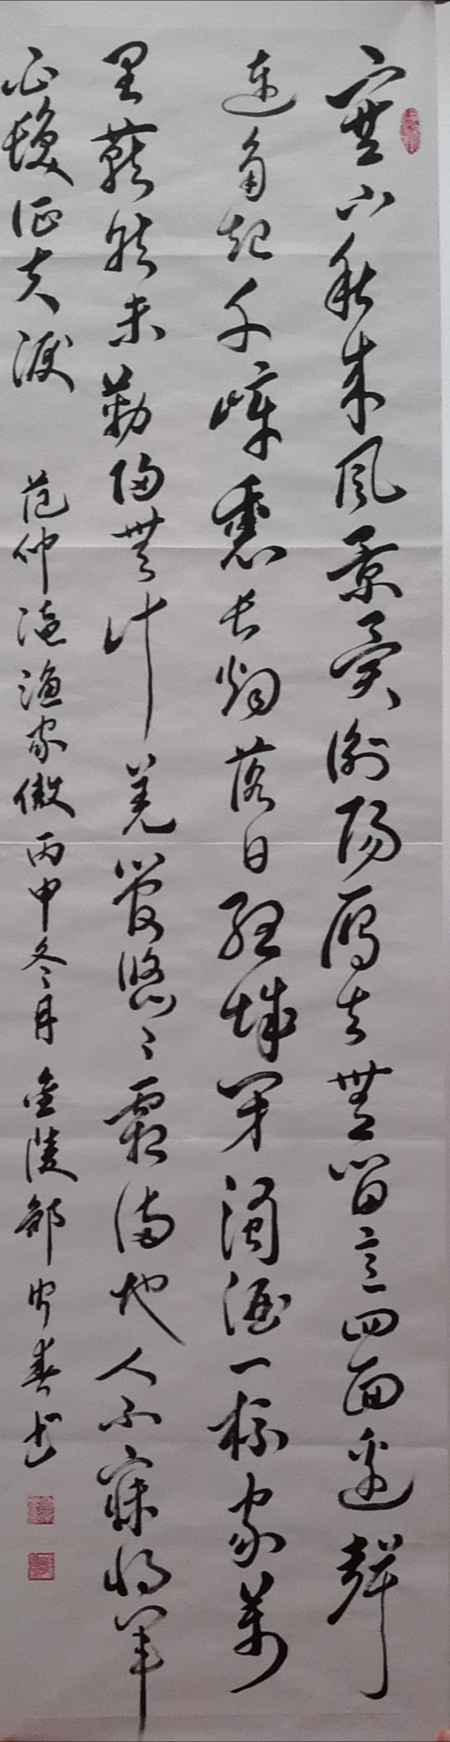 塞下秋来风景异衡阳雁去無留意四面邊聲
連角起千嶂裏长烟落日孤城闭濁酒一杯家萬
里燕然未勒歸無计羌管悠々霜满地人不寐将军
白髮征夫淚 范仲淹渔家傲丙申冬月金陵春书